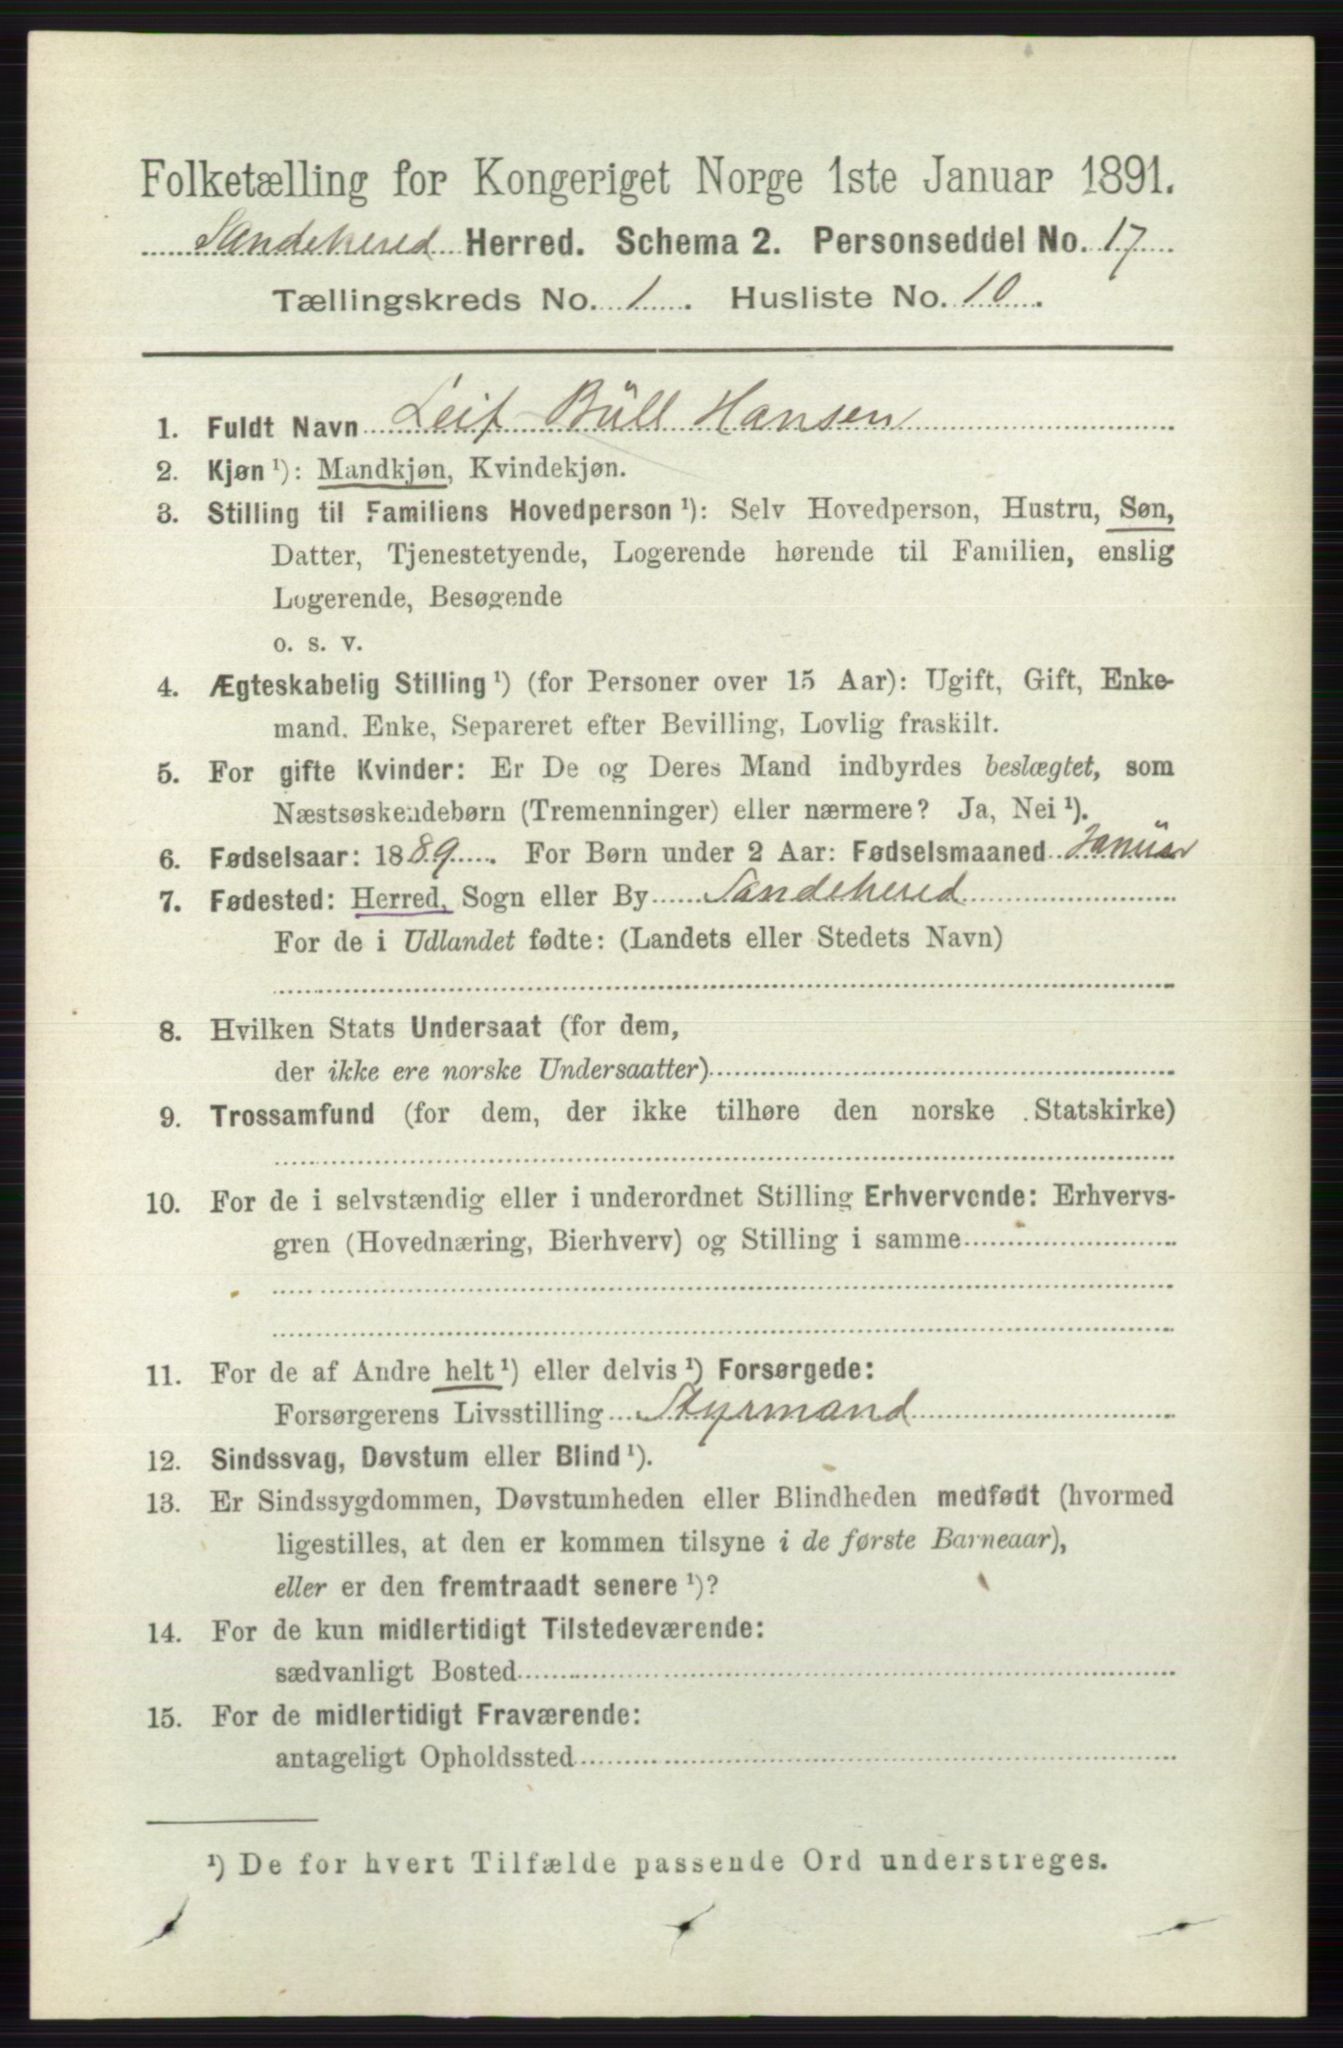 Folketælling for Kongeriget Norge 1ste Januar 1891.
Sandehered Herred. Schema 2. Personseddel No. 17
Tællingskreds No. 1. Husliste No. 10.
1. Fuldt Navn Leif Büll Hansen
2. Kjøn ¹): Mandkjøn, Kvindekjøn.
3. Stilling til Familiens Hovedperson ¹): Selv Hovedperson, Hustru, Søn,
Datter, Tjenestetyende, Logerende hørende til Familien, enslig
Logerende, Besøgende
o. s. v.
4. Ægteskabelig Stilling ¹) (for Personer over 15 Aar): Ugift, Gift, Enke-
mand. Enke, Separeret efter Bevilling, Lovlig fraskilt.
5. For gifte Kvinder: Er De og Deres Mand indbyrdes beslægtet, som
Næstsøskendebørn (Tremenninger) eller nærmere? Ja, Nei ¹).
6. Fødselsaar: 1889. For Børn under 2 Aar: Fødselsmaaned Januar
7. Fødested: Herred, Sogn eller By Sandehered
For de i Udlandet fødte: (Landets eller Stedets Navn)
8. Hvilken Stats Undersaat (for dem,
der ikke ere norske Undersaatter)
9. Trossamfund (for dem, der ikke tilhøre den norske Statskirke)
10. For de i selvstændig eller i underordnet Stilling Erhvervende: Erhvervs-
gren (Hovednæring, Bierhverv) og Stilling i samme
11. For de af Andre helt ¹) eller delvis ¹) Forsørgede:
Forsørgerens Livsstilling Styrmand
12. Sindssvag, Døvstum eller Blind ¹).
13. Er Sindssygdommen, Døvstumheden eller Blindheden medfødt (hvormed
ligestilles, at den er kommen tilsyne i de første Barneaar),
eller er den fremtraadt senere ¹)?
14. For de kun midlertidigt Tilstedeværende:
sædvanligt Bosted
15. For de midlertidigt Fraværende:
antageligt Opholdssted
¹) De for hvert Tilfælde passende Ord understreges.